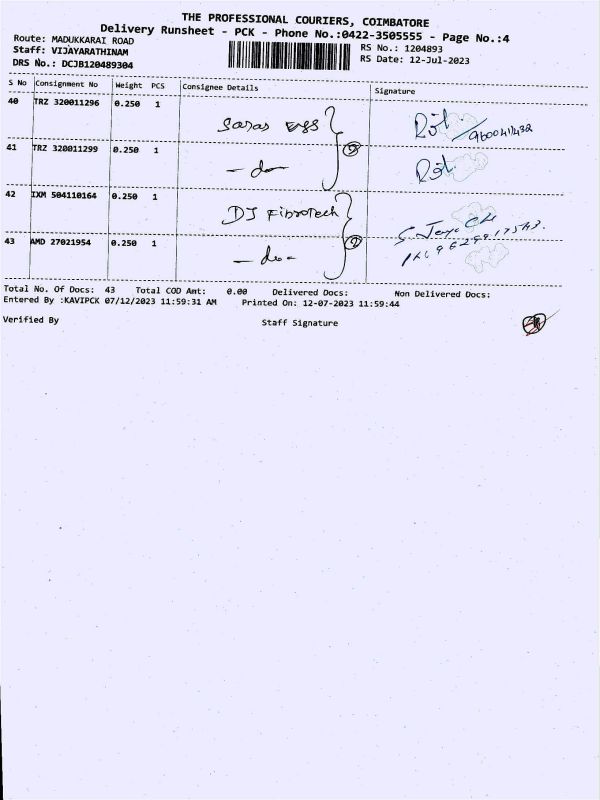 THE PROFESSIONAL COURIERS, COIMBATORE
Delivery Runsheet - PCK - Phone No.:0422-3505555 - Page No.:4
Route: MADUKKARAI ROAD
Staff: VIJAYARATHINAM
DRS No.: DCJB120489304
RS No.: 1204893
RS Date: 12-Jul-2023
S No Consignment No Weight PCS Consignee Details Signature
40 TRZ 320011296 0.250 1
Saras Eggs
9600411432
41 TRZ 320011299 0.250 1
- do -
42 IXM 504110164 0.250 1
DJ FibroTech
43 AMD 27021954 0.250 1
- do -
Total No. Of Docs: 43 Total COD Amt: 0.00 Delivered Docs: Non Delivered Docs:
Entered By :KAVIPCK 07/12/2023 11:59:31 AM Printed On: 12-07-2023 11:59:44
Verified By Staff Signature